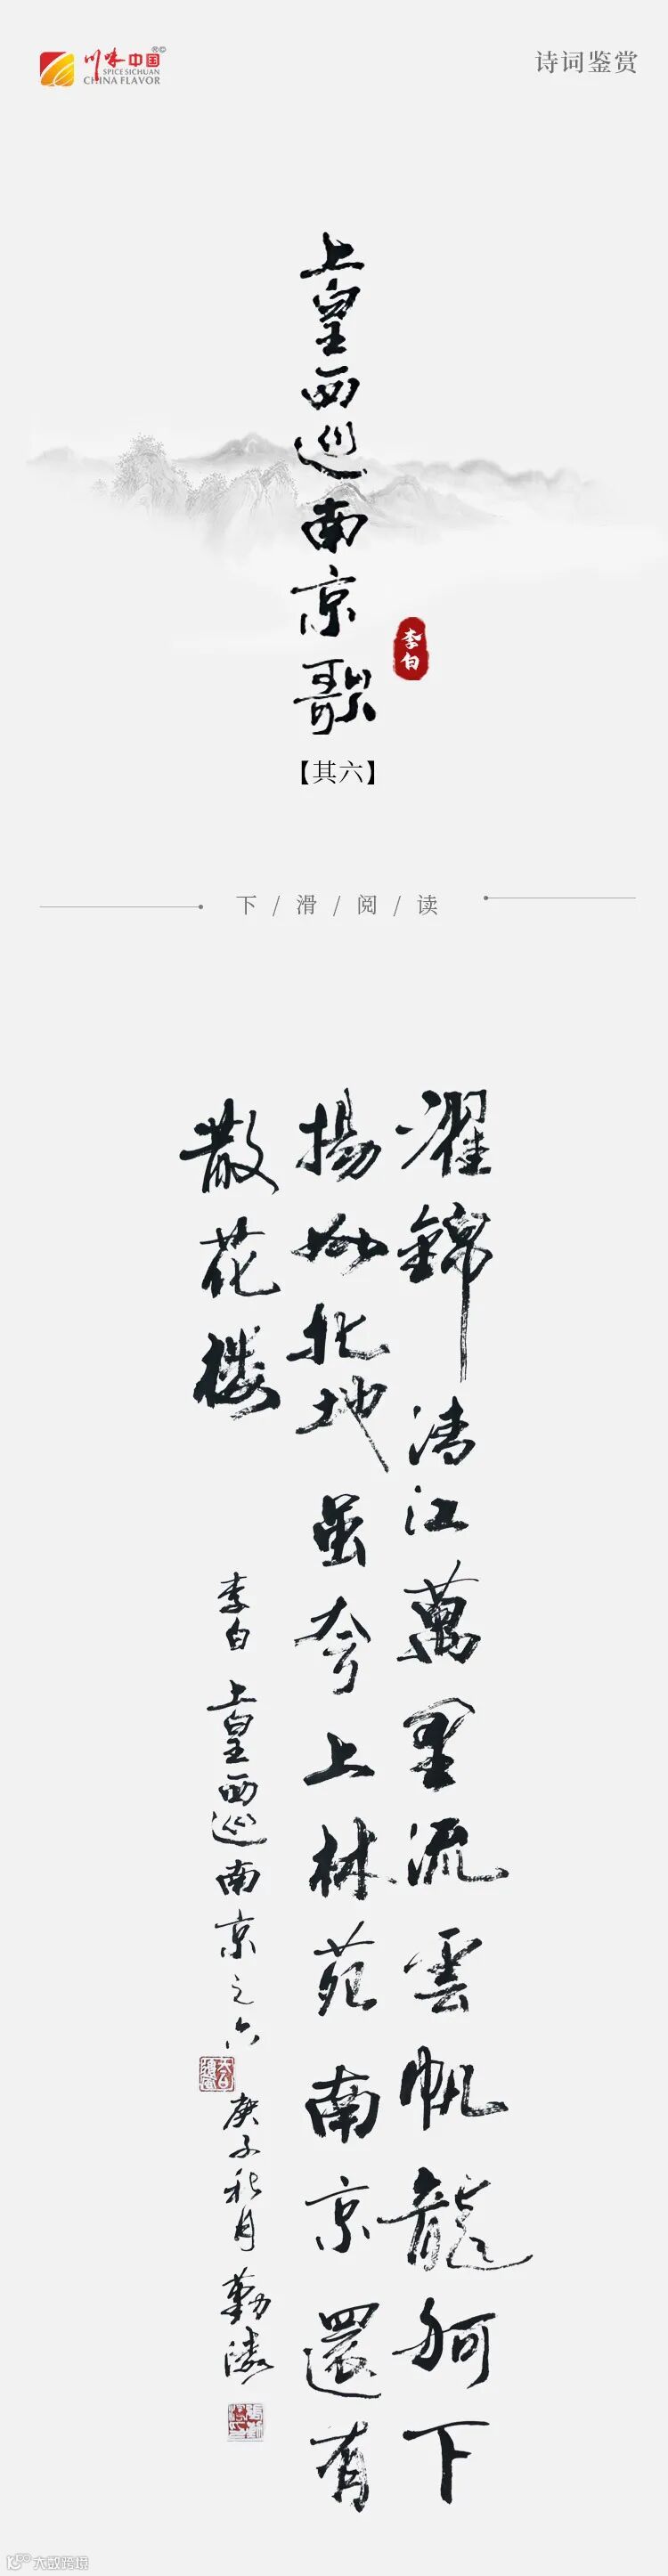 川味中国®©
SPICE SICHUAN
CHINA FLAVOR
诗词鉴赏
上皇西巡南京歌
李白
【其六】
下/滑/阅/读
濯錦清江萬里流雲帆龍舸下
揚州北地虽夸上林苑南京還有
散花楼
李白 上皇西巡南京之六
庚子秋月勤
大数跨境